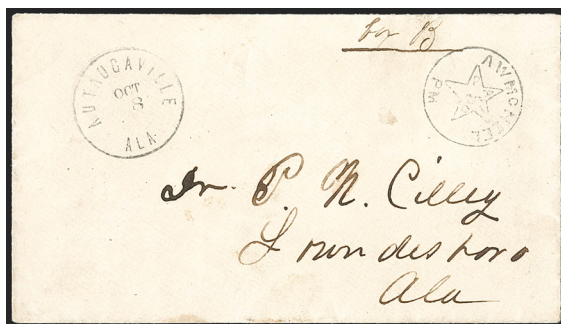 box B
AUTAUGAVILLE
OCT
8
ALA.
PM
Dr. P. N. Cilley
Lowndesboro
Ala